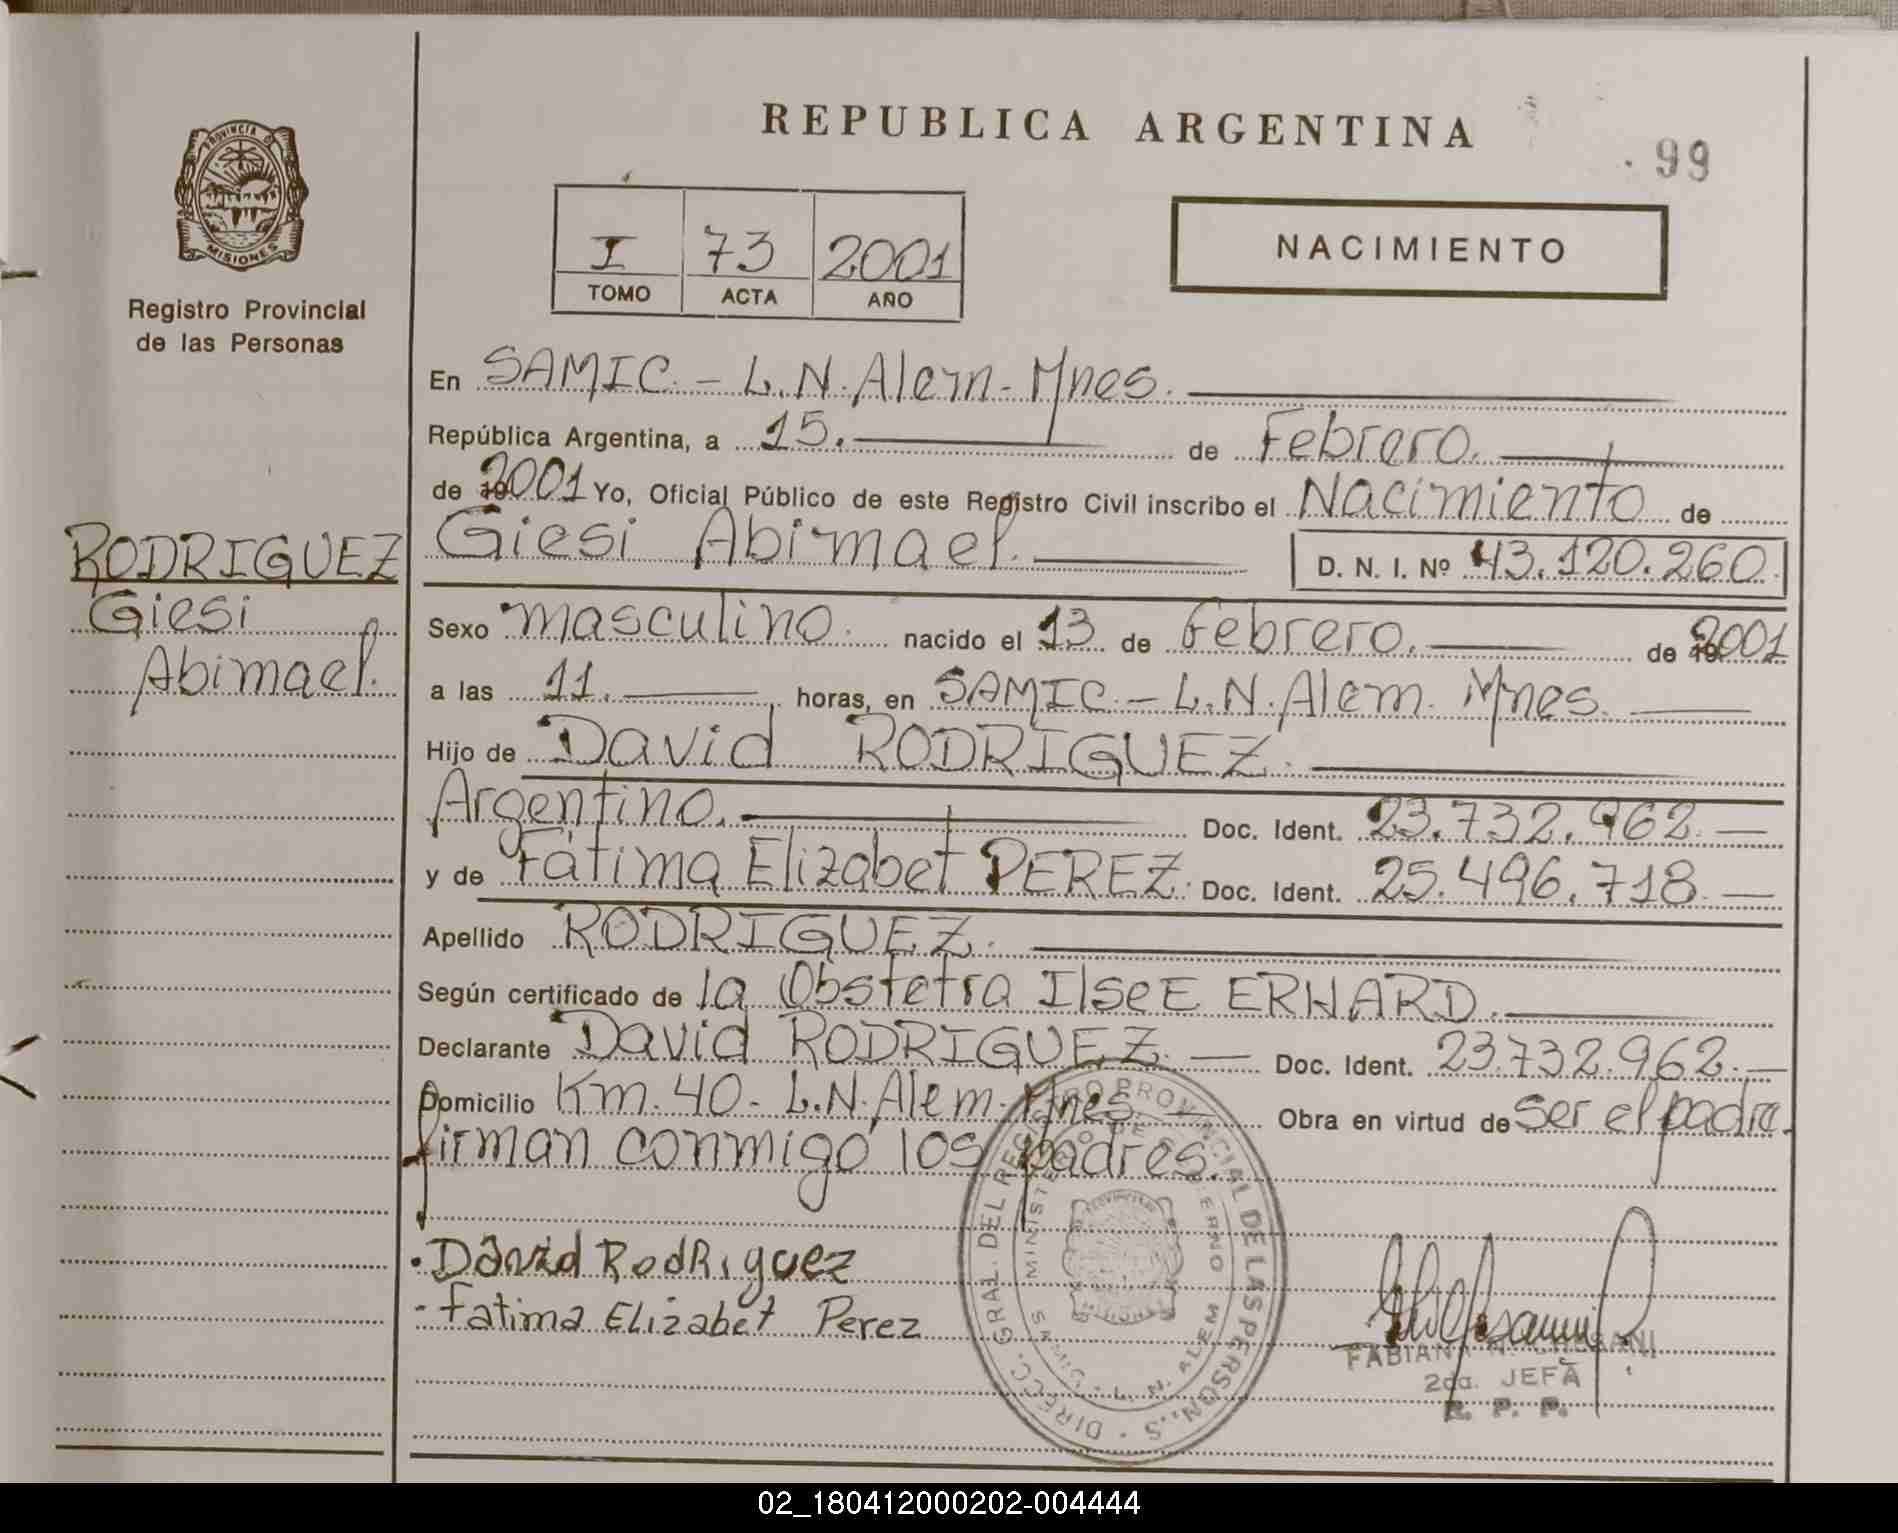 REPUBLICA ARGENTINA
99
PROVINCIA D
MISIONES
Registro Provincial
de las Personas
I 73 2001
TOMO ACTA AÑO
NACIMIENTO
En SAMIC. - L.N. Alem - Mnes.
República Argentina, a 15. de Febrero.
de 2001 Yo, Oficial Público de este Registro Civil inscribo el Nacimiento de
Giesi Abimael. D. N. I. Nº 43.120.260.
RODRIGUEZ
Giesi
Abimael.
Sexo masculino. nacido el 13 de Febrero. de 2001
a las 11. horas, en SAMIC. - L.N. Alem. Mnes.
Hijo de David RODRIGUEZ.
Argentino. Doc. Ident. 23.732.962. —
y de Fátima Elizabet PEREZ. Doc. Ident. 25.496.718. —
Apellido RODRIGUEZ.
Según certificado de la Obstetra IlseE ERHARD.
Declarante David RODRIGUEZ. — Doc. Ident. 23.732.962. —
Domicilio Km. 40 - L.N. Alem. Mnes. — Obra en virtud de ser el padre.
firman conmigo los padres.
David RodRiguez
- Fatima Elizabet Perez
DIRECC. GRAL. DEL REGISTRO PROVINCIAL DE LAS PERSON.S
MINISTERIO DE GOBIERNO
SAMIC - L. N. ALEM
FABIANA
2da. JEFA
R. P. P.
02_180412000202-004444